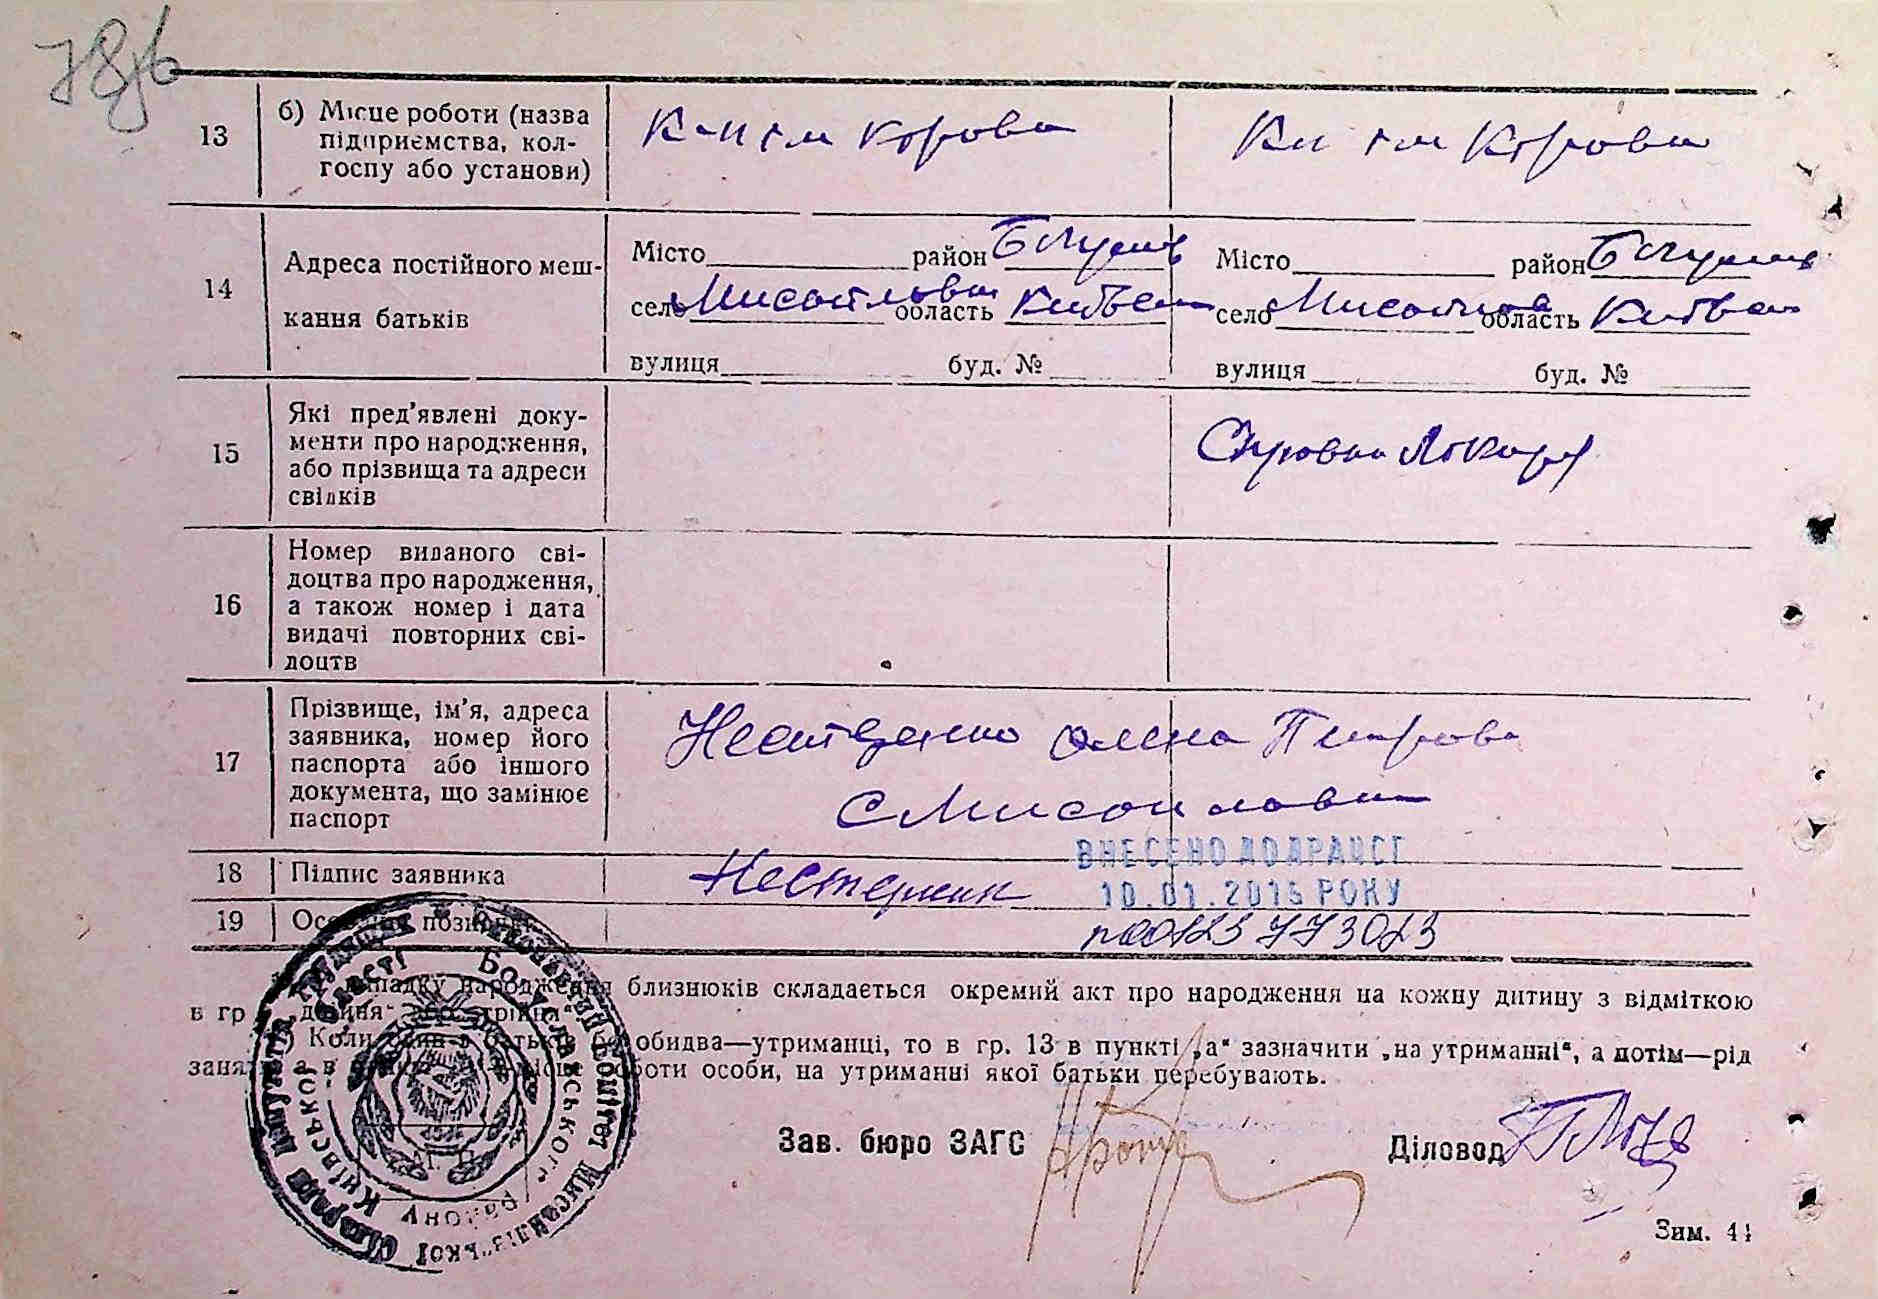 78/6
13
б) Місце роботи (назва
підприємства, кол-
госпу або установи)
К-п ім Кірова
К-п ім Кірова
14
Адреса постійного меш-
кання батьків
Місто район Б
село область Київськ
вулиця буд. №
Місто район Б
село область Київськ
вулиця буд. №
15
Які пред'явлені доку-
менти про народження,
або прізвища та адреси
свідків
Справка лікаря
16
Номер виданого сві-
доцтва про народження,
а також номер і дата
видачі повторних сві-
доцтв
17
Прізвище, ім'я, адреса
заявника, номер його
паспорта або іншого
документа, що замінює
паспорт
Нестеренко Олена Петровна
18
Підпис заявника
Нестеренк
ВНЕСЕНО ДО ДРАЦСГ
10.01.2015 РОКУ
19
00125773023
випадку народження близнюків складається окремий акт про народження на кожну дитину з відміткою
в гр „двійня“ або „трійня“
Коли один з батьків або обидва—утриманці, то в гр. 13 в пункті „а“ зазначити „на утриманні“, а потім—рід
занять, а в місце роботи особи, на утриманні якої батьки перебувають.
Зав. бюро ЗАГС
Діловод
Зим. 44
Виконавчий Комітет Сільської Ради Депутатів Трудящих
Богуславського району Київської області